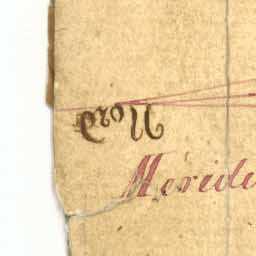 Nord
Meridi